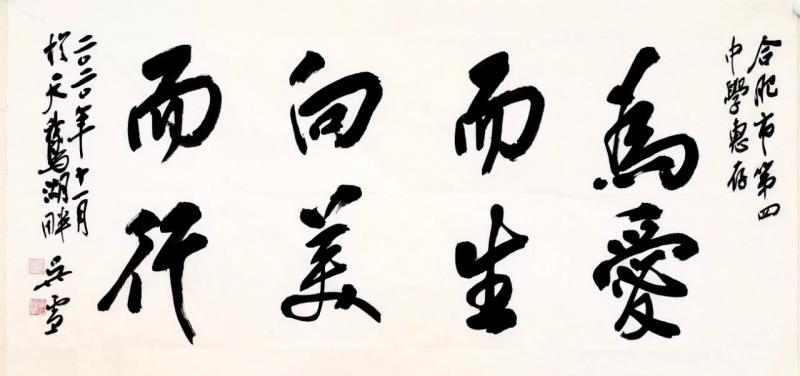 合肥市第四
中學惠存
為愛
而生
向美
而行
二〇二〇年十一月
於天鵝湖畔 吳雪